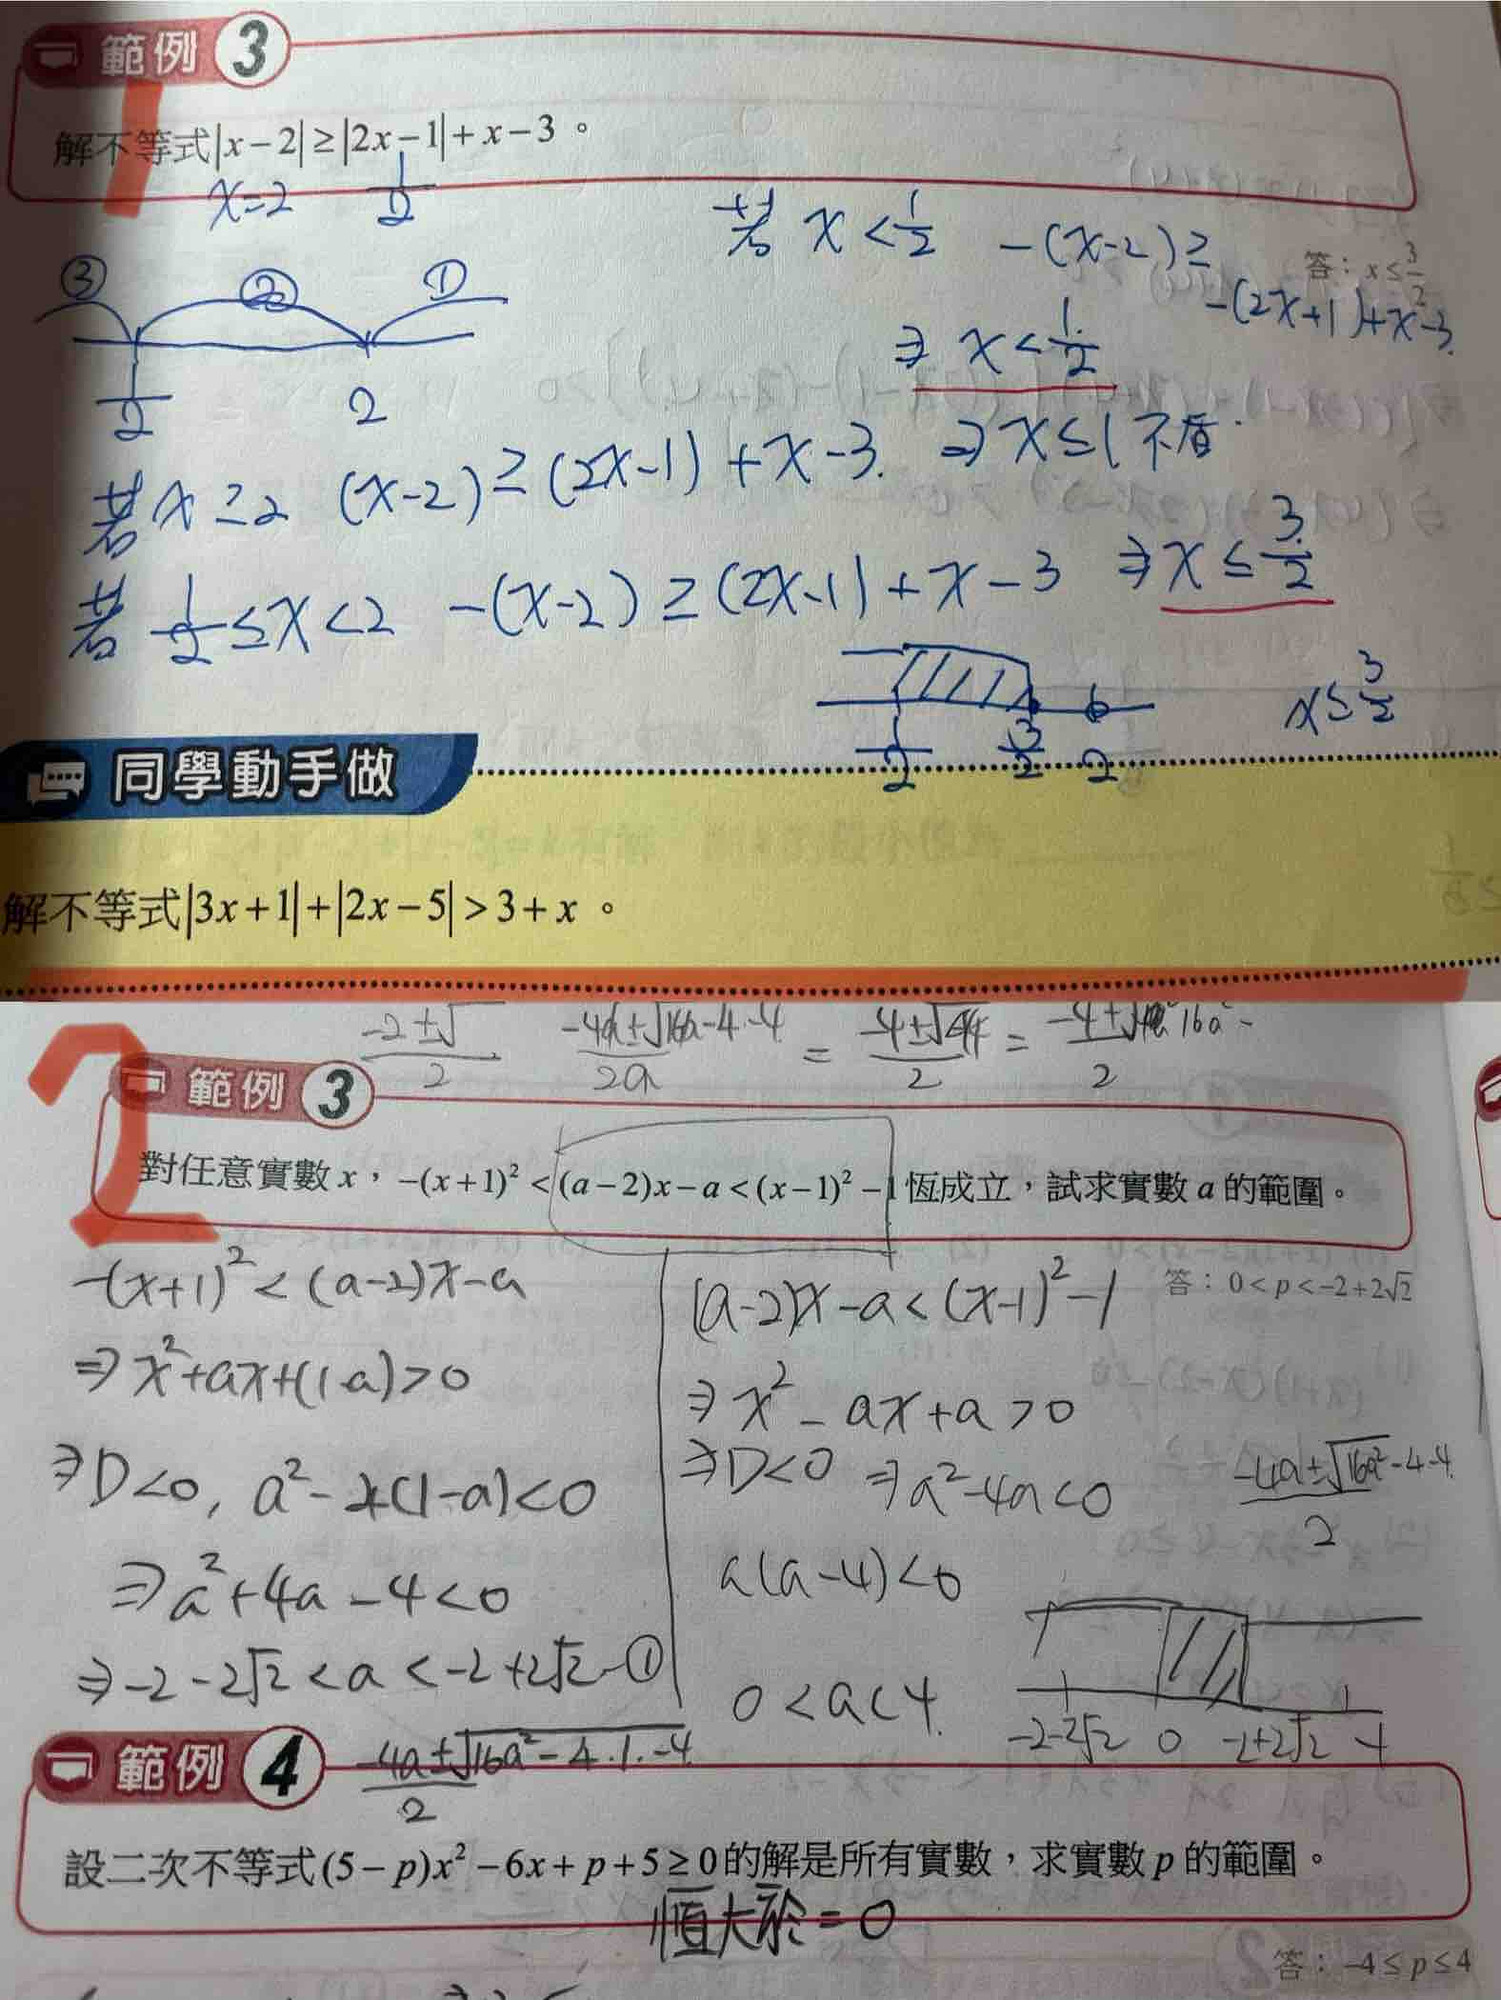 範例 3
1
解不等式|x-2|≥|2x-1|+x-3。
x=2 1/2
若 x<1/2 -(x-2)≥
-(2x+1)+x-3.
答：x≤3/2
③ ② ①
1/2 2
⇒ x<1/2
若 x≥2 (x-2)≥(2x-1)+x-3. ⇒x≤1 矛盾.
若 1/2≤x<2 -(x-2)≥(2x-1)+x-3 ⇒x≤3/2
1/2 3/2 2
x≤3/2
同學動手做
解不等式|3x+1|+|2x-5|>3+x。
2
範例 3
對任意實數 x，-(x+1)²<(a-2)x-a<(x-1)²-1恆成立，試求實數 a 的範圍。
答：0<p<-2+2√2
-(x+1)²<(a-2)x-a
⇒x²+ax+(1-a)>0
⇒D<0, a²-4(1-a)<0
⇒a²+4a-4<0
⇒-2-2√2<a<-2+2√2-①
(a-2)x-a<(x-1)²-1
⇒x²-ax+a>0
⇒D<0 ⇒a²-4a<0
a(a-4)<0
0<a<4.
(-4a±√16a²-4·-4)/2
-2-2√2 0 -2+2√2 4
(-4a±√16a²-4·1·-4)/2
範例 4
設二次不等式(5-p)x²-6x+p+5≥0的解是所有實數，求實數 p 的範圍。
恆大於=0
答：-4≤p≤4